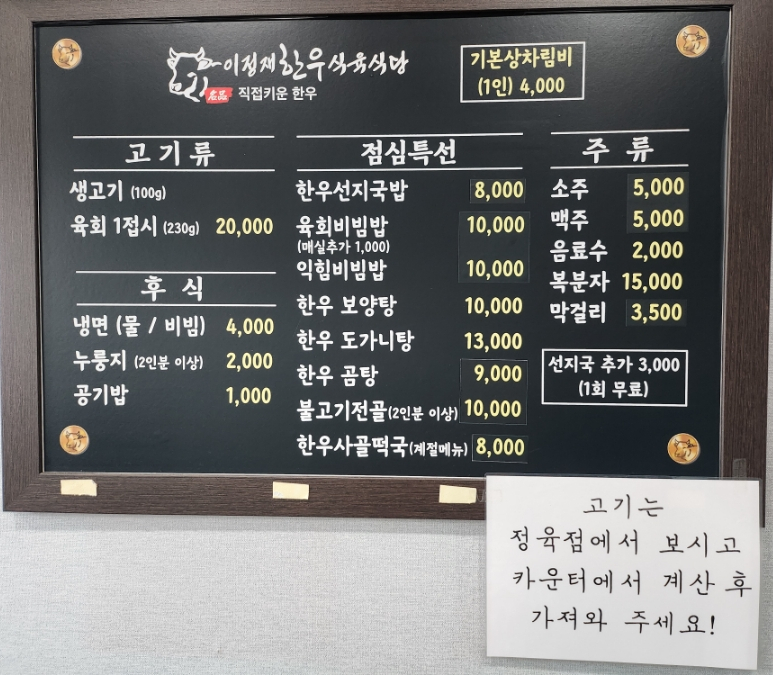 이점재한우식육식당
名品 직접키운 한우
기본상차림비
(1인) 4,000
고기류
생고기 (100g)
육회 1접시 (230g) 20,000
후식
냉면 (물 / 비빔) 4,000
누룽지 (2인분 이상) 2,000
공기밥 1,000
점심특선
한우선지국밥 8,000
육회비빔밥 10,000
(매실추가 1,000)
익힘비빔밥 10,000
한우 보양탕 10,000
한우 도가니탕 13,000
한우 곰탕 9,000
불고기전골(2인분 이상) 10,000
한우사골떡국(계절메뉴) 8,000
주류
소주 5,000
맥주 5,000
음료수 2,000
복분자 15,000
막걸리 3,500
선지국 추가 3,000
(1회 무료)
고기는
정육점에서 보시고
카운터에서 계산 후
가져와 주세요!